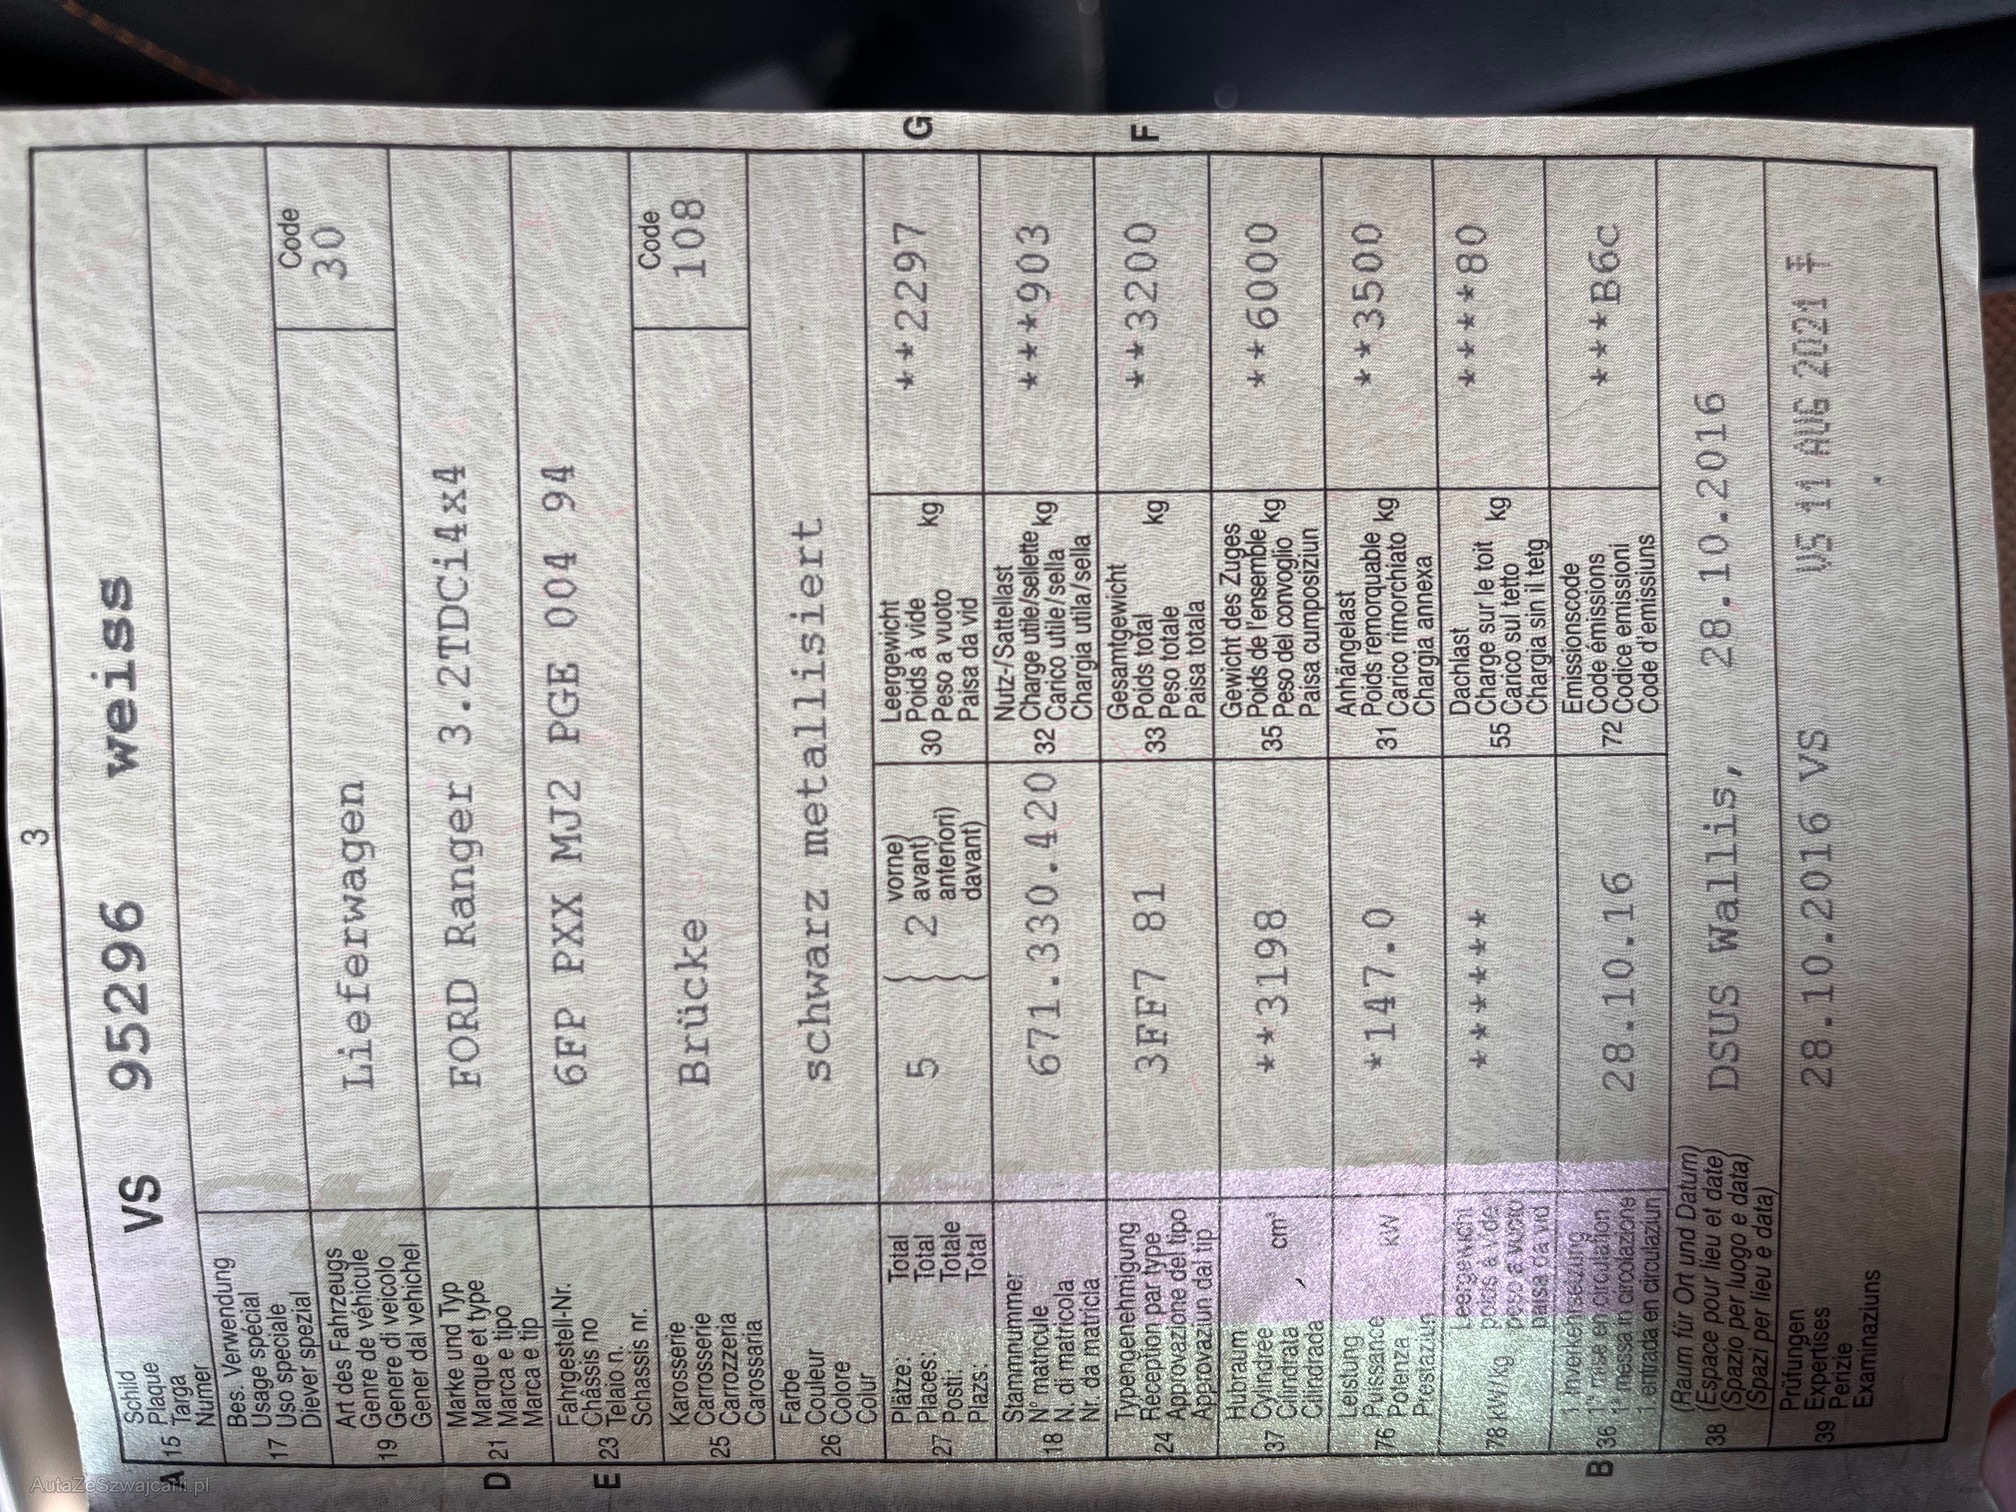 3
Schild
Plaque
A 15 Targa VS 95296 weiss
Numer
Bes. Verwendung
Usage spécial
17 Uso speciale
Diever spezial
Art des Fahrzeugs Code
Genre de véhicule Lieferwagen 30
19 Genere di veicolo
Gener dal vehichel
Marke und Typ
Marque et type FORD Ranger 3.2TDCi4x4
D 21 Marca e tipo
Marca e tip
Fahrgestell-Nr.
Châssis no 6FP PXX MJ2 PGE 004 94
E 23 Telaio n.
Schassis nr.
Karosserie Code
Carrosserie Brücke 108
25 Carrozzeria
Carossaria
Farbe
Couleur schwarz metallisiert
26 Colore
Colur
Plätze: Total vorne) Leergewicht
Places: Total 5 2 avant) Poids à vide **2297 G
27 Posti: Totale anteriori) 30 Peso a vuoto kg
Plazs: Total davant) Paisa da vid
Stammnummer Nutz-/Sattellast
N° matricule 671.330.420 Charge utile/sellette kg ***903
18 N. di matricola 32 Carico utile/sella
Nr. da matricla Chargia utila/sella
Typengenehmigung Gesamtgewicht
Réception par type 3FF7 81 Poids total kg **3200 F
24 Approvazione del tipo 33 Peso totale
Approvaziun dal tip Paisa totala
Hubraum Gewicht des Zuges
Cylindrée cm³ **3198 Poids de l'ensemble kg **6000
37 Cilindrata 35 Peso del convoglio
Cilindrada Paisa cumposiziun
Leistung Anhängelast
Puissance kW *147.0 Poids remorquable kg **3500
76 Potenza 31 Carico rimorchiato
Prestaziun Chargia annexa
Leergewicht Dachlast
poids à vide ****** Charge sur le toit kg *****80
78 kW/kg peso a vuoto 55 Carico sul tetto
paisa da vid Chargia sin il tetg
1. Inverkehrsetzung Emissionscode
1re mise en circulation 28.10.16 Code émissions ***B6c
B 36 1a messa in circolazione 72 Codice emissioni
1. entrada en circulaziun Code d'emissiuns
(Raum für Ort und Datum)
(Espace pour lieu et date) DSUS Wallis, 28.10.2016
38 (Spazio per luogo e data)
(Spazi per lieu e data)
Prüfungen
39 Expertises 28.10.2016 VS VS 11 AUG 2021
Perizie
Examinaziuns
AutaZeSzwajcarii.pl